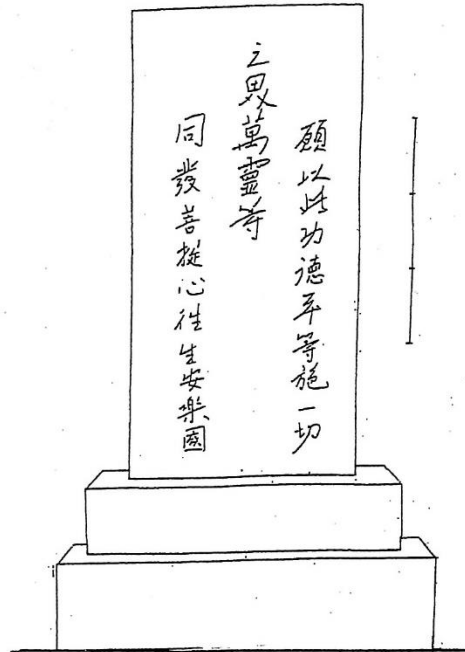 願以此功徳平等施一切
三界萬靈等
同發菩提心往生安楽國